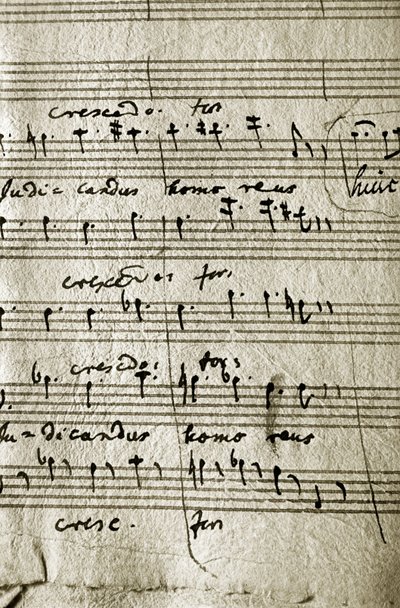 crescdo: for
Judi= candus homo reus
huic
crescdo: for:
crescdo: for:
Ju=dicandus homo reus
cresc. for